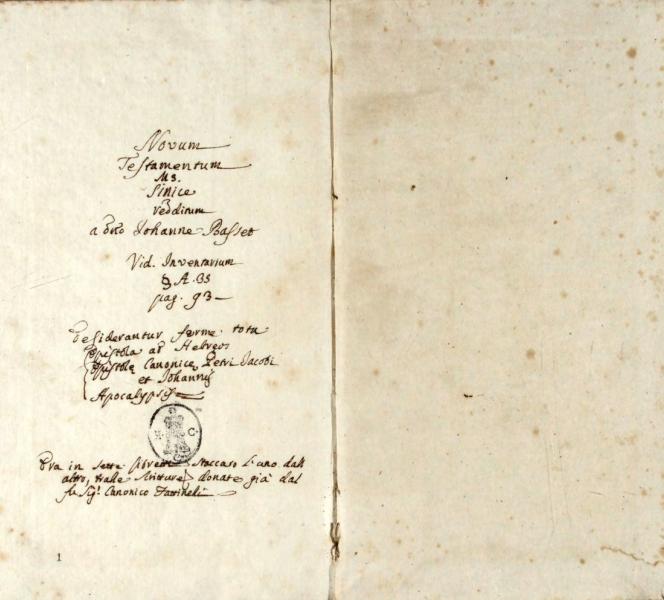 Novum
Testamentum
Ms.
Sinice
redditum
a Dño Johanne Basset
Vid. Inventarium
§ A. 35
pag. 93
Desiderantur ferme tota
Epistola ad Hebreos
Epistolę Canonicę Petri Jacobi
et Johannis
Apocalypsis
C
Era in sette libretti staccato l'uno dall
altro, tralle scritture donate già dal
fu Sigr. Canonico Fattinelli
1